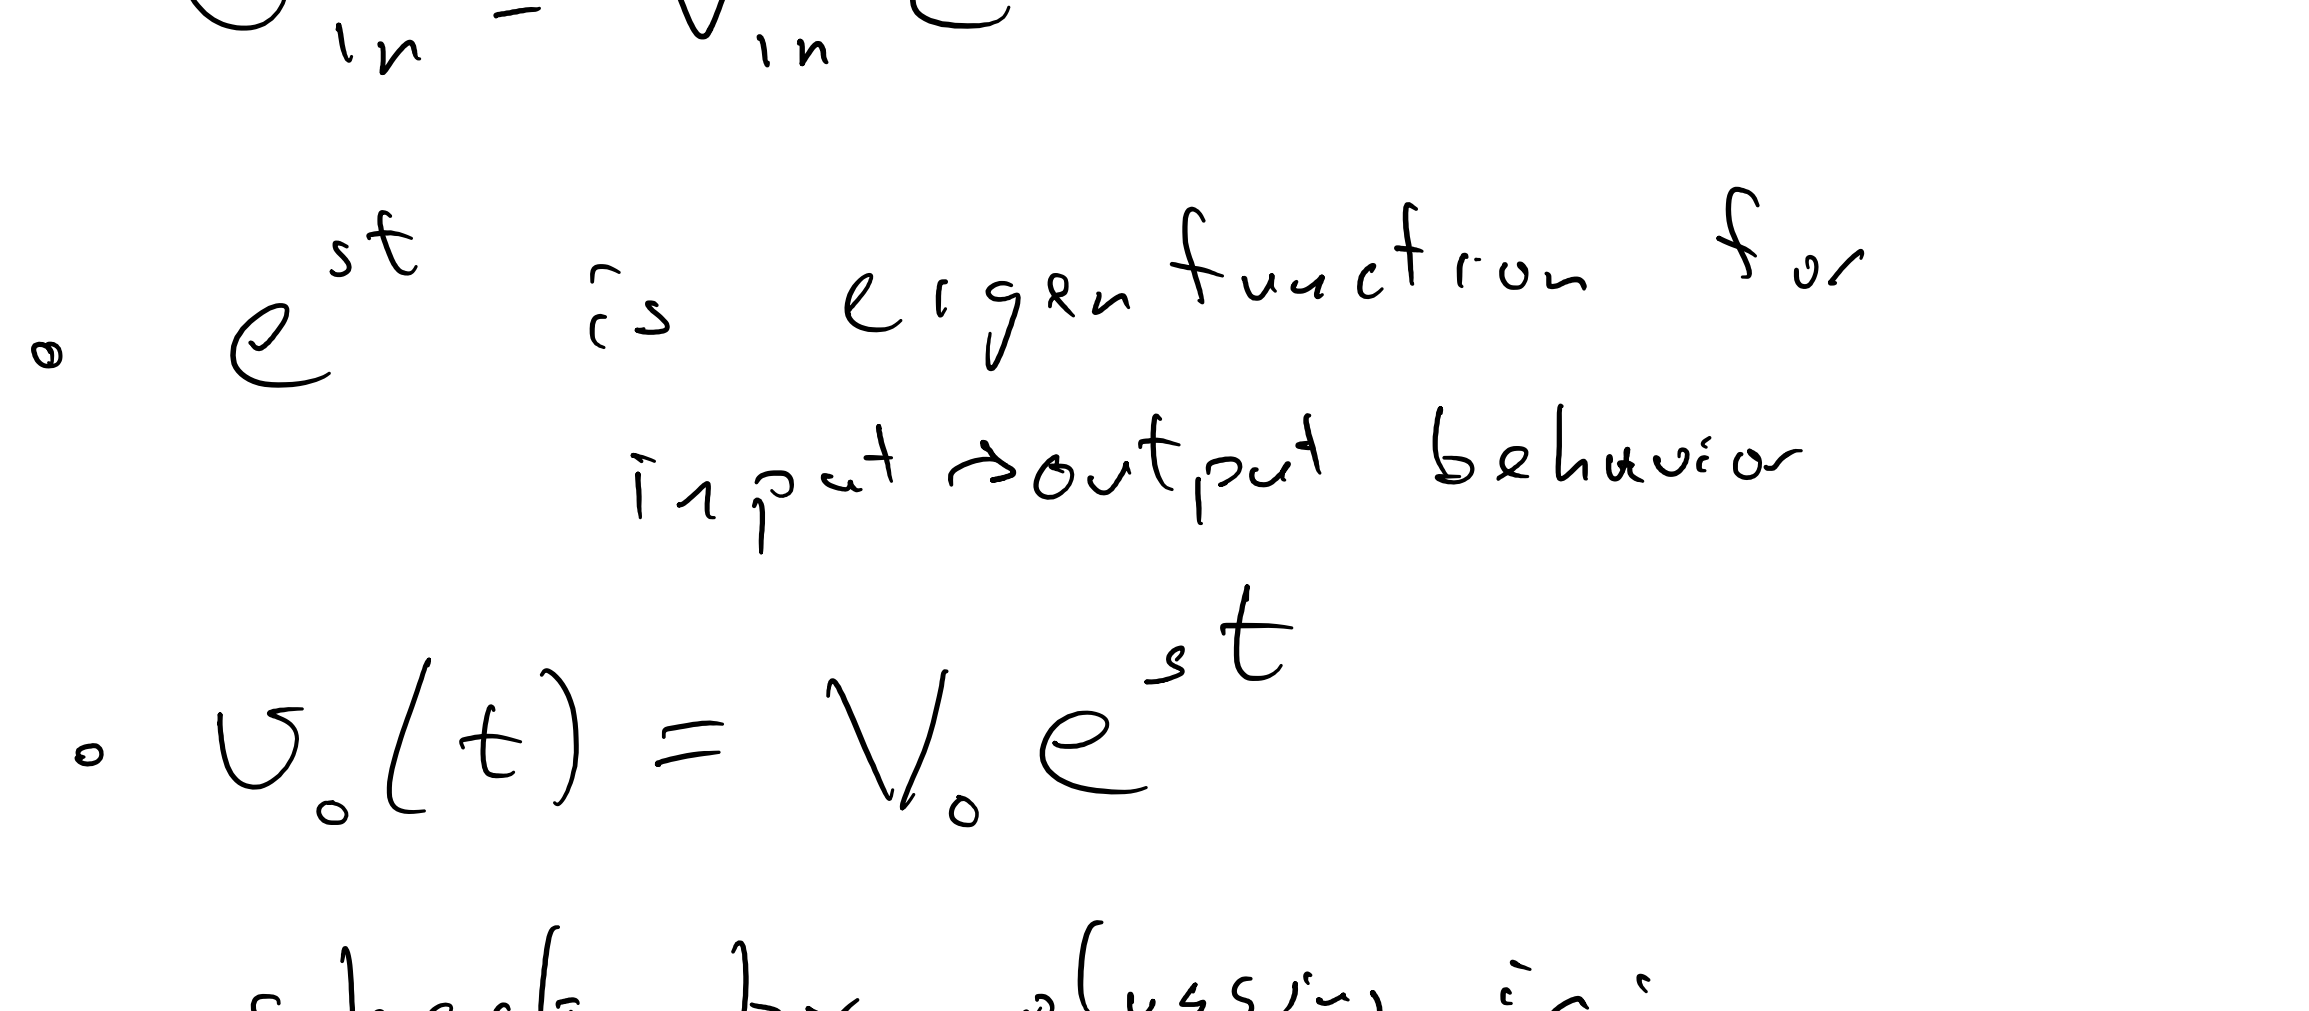 v_in = V_in e
• e^st is eigenfunction for
input → output behavior
• v_o(t) = V_o e^st
check by plugging in: